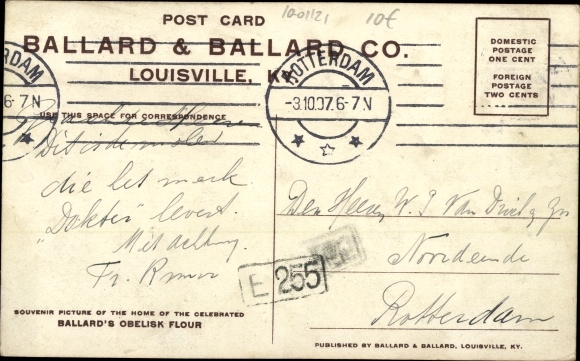 10-01121 10€
POST CARD
BALLARD & BALLARD CO.
LOUISVILLE, KY.
DOMESTIC
POSTAGE
ONE CENT
FOREIGN
POSTAGE
TWO CENTS
ROTTERDAM
6-7N
ROTTERDAM
-3.10.07.6-7N
USE THIS SPACE FOR CORRESPONDENCE
Dit is de molen
die het merk
"Dokter" levert.
Met achting.
Fr.
Den Heeren W. J. Van
Noordeinde
Rotterdam
E 255
SOUVENIR PICTURE OF THE HOME OF THE CELEBRATED
BALLARD'S OBELISK FLOUR
PUBLISHED BY BALLARD & BALLARD, LOUISVILLE, KY.